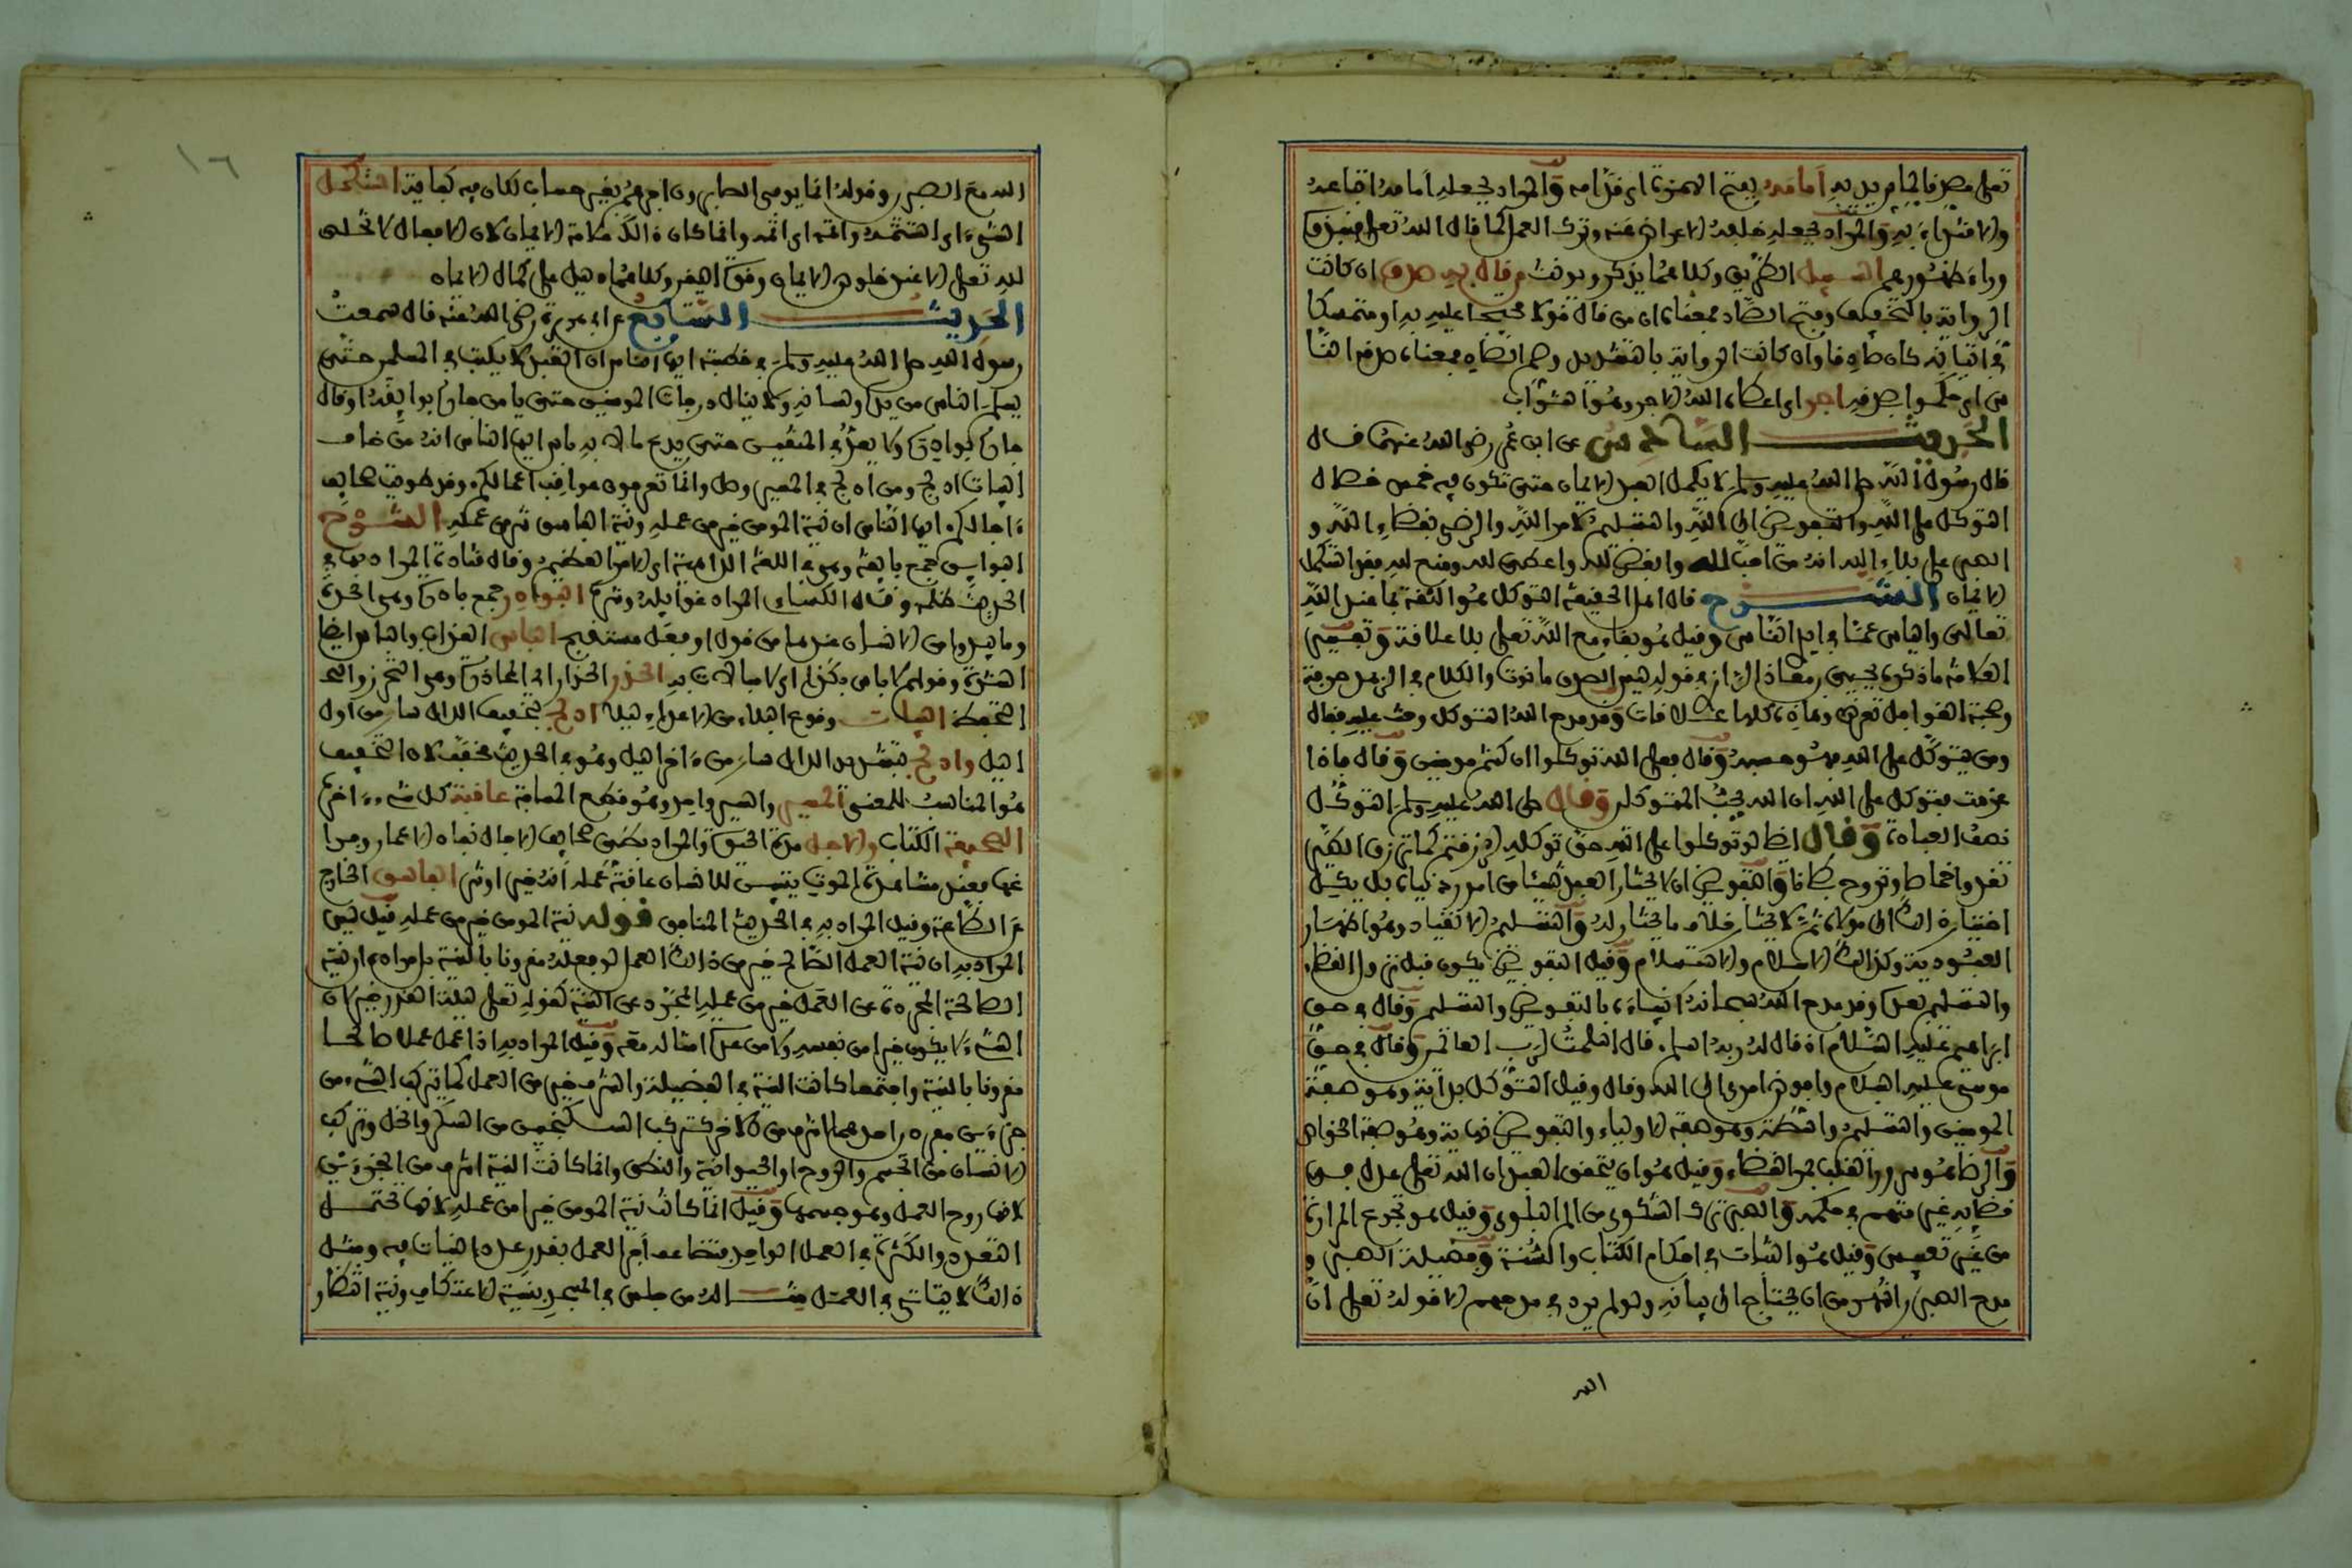 تعلى مصدقا لما بين يديه أمامه بفتح الهمزة اي قدامه والمراد بجعله أمامه اتباعه
والاقتداء به والمراد بجعله خلفه الاعراض عنه وترك العمل كما قال الله تعلى فنبذوه
وراء ظهورهم السبيل الطريق وكلاهما يذكر ويونث من قال به صدق ان كانت
الرواية بالتخفيف وفتح الصاد فمعناه ان من قال قولا محتجا عليه به او متمسكا
في اتيانه كان صادقا وان كانت الرواية بالتشديد وضم الصاد فمعناه صدقه النا
س اي حكموا بصدقه اجر اي اعطاه الله الاجر وهو الثواب
الحديث السادس عن ابن عمر رضي الله عنهما قال
قال رسول الله صلى الله عليه وسلم لا يكمل العبد الايمان حتى تكون فيه خمس خصال
التوكل على الله والتفويض الى الله والتسليم لامر الله والرضى بقضاء الله و
الصبر على بلاء الله انه من احب لله وابغض لله واعطى لله ومنع لله فقد استكمل
الايمان الشرح قال اهل الحقيقة التوكل هو الثقة بما عند الله
تعالى والياس عما في ايدي الناس وقيل هو بقاء مع الله تعلى بلا علاقة وتفسير
العلامة ما ذكره يحيى بن معاذ الرازي في قوله لبس الصوف حانوت والكلام في الزهد حرفة
وصحبة القوافل تعرض وهاذه كلها علاقات وقد مدح الله التوكل وحث عليه فقال
ومن يتوكل على الله فهو حسبه وقال وعلى الله فتوكلوا ان كنتم مومنين وقال فاذا
عزمت فتوكل على الله ان الله يحب المتوكلين وقال صلى الله عليه وسلم التوكل
نصف العبادة وقال ايضا لو توكلوا على الله حق توكله لرزقتم كما ترزق الطير
تغدوا خماصا وتروح بطانا والتفويض ان لا يختار العبد شيئا من امر دنياه بل يكل
اختياره الى مولاه ثم لا يختار خلاف ما يختار له والتسليم الانقياد وهو اظهار
العبودية وكذالك الاسلام والاستسلام وقيل التفويض يكون قبل نزول القضاء
والتسليم بعده وقد مدح الله سبحانه انبياءه بالتفويض والتسليم وقال في حق
ابراهيم عليه السلام اذ قال له ربه اسلم قال اسلمت لرب العالمين وقال في حق
موسى عليه السلام وافوض امري الى الله وقال وقيل التوكل بداية وهو صفة
المومنين والتسليم واسطة وهو صفة الاولياء والتفويض نهاية وهو صفة الخواص
والرضا هو سرور القلب بمر القضاء وقيل هو ان يتحقق العبد ان الله تعلى عدل في
قضايه غير متهم في حكمه والصبر ترك الشكوى من الم البلوى وقيل هو تجرع المرارة
من غير تعبيس وقيل هو الثبات في احكام الكتاب والسنة وفضيلة الصبر و
مدح الصبر اشهر من ان يحتاج الى بيانه ولو لم يرد في مدحهم الا قوله تعلى ان
الله
١٦
الله مع الصبرين وقوله انما يوفى الصابرون اجرهم بغير حساب لكان فيه كفاية استكمل
الشيء اي استتمه واتمه اي اتمه وانما كان ذالك علامة الايمان لان الافعال لا تخلص
لله تعلى الا عند خلوص الايمان وقوة اليقين وكلاهما دليل على كمال الايمان
الحديث السابع عن ابي هريرة رضي الله عنه قال سمعت
رسول الله صلى الله عليه وسلم في خطبته ايها الناس ان العبد لا يكتب في المسلمين حتى
يسلم الناس من يده ولسانه ولا ينال درجات المومنين حتى يامن جاره بوايقه او قال
جاره بوادره ولا يعد في المتقين حتى يدع ما لا باس به ايها الناس انه من خاف
البيات ادلج ومن ادلج في المسير وصل وانما تعرفون عواقب اعمالكم وقد طويت صحايف
ءاجالكم ايها الناس ان نية المومن خير من عمله ونية الفاسق شر من عمله الشرح
البوايق جمع بايقة وهي في اللغة الداهية اي الامر العظيم وقال قتادة المراد بها في
الحديث ظلمه وقال الكساءي المراد غوايله وشره البوادر جمع بادرة وهي الحدة
وما يبدوا من الانسان عند ما من قول او فعل مستقبح الباس العذاب والباس ايضا
الشدة وقولهم لا باس بكذا اي لا مبالات به الحذر الحذار اي المحاذرة وهي التحرز و
التحفظ البيات وقوع البلاء من الاعداء ليلا ادلج بتخفيف الدال سار من اول
الليل وادلج بتشديد الدال سار من ءاخر الليل وهو في الحديث مخفف لان التخفيف
هو المناسب للمعنى المسير والسير واحد وهو قطع المسافة عاقبة كل شيء ءاخره
الصحيفة الكتاب والاجل مدة الحياة والمراد بطي صحايف الاجال نفاد الاعمار وفرا
غها فعند مشاهدة الموت يتبين للانسان عاقبة عمله أنه خير او شر الفاسق الخارج
عن الطاعة وقيل المراد به في الحديث المنافق قوله نية المومن خير من عمله قيل ليس
المراد به ان نية العمل الصالح خير من ذالك العمل لو فعله مقرونا بالنية بل مراده ان نية
الصالحة المجردة عن العمل خير من عمله المجرد عن النية كقوله تعلى ليلة القدر خير لان
الشيء لا يكون خيرا من نفسه ولا من عدة امثاله معه وقيل المراد به اذا عمل عملا صالحا
مقرونا بالنية واجتمعا كانت النية في الفضيلة والشرف خير من العمل كما يتركب الشيء من
جزءين مفردا احدهما اشرف من الاخر كتركب السكنجبين من السكر والخل وتركب
الانسان من الجسم والروح او الحيوانية والنطق وانما كانت النية اشرف من الجزءين
لانها روح العمل وهو جسمها وقيل انما كانت نية المومن خيرا من عمله لانها تحتمل
التعدد والكثرة في العمل الواحد فيتضاعف أجر العمل بقدر عدد النيات فيه ومثل
ذالك لا يتاتى في العمل مثاله من جلس في المسجد بنية الاعتكاف ونية انتظار